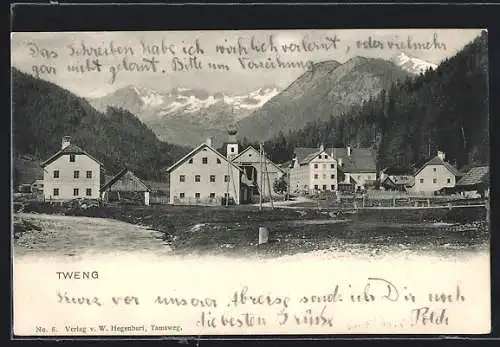 Das Schreiben habe ich wirklich verlernt, oder vielmehr
gar nicht gelernt. Bitte um Verzeihung
TWENG
Kurz vor unserer Abreise sende ich Dir noch
die besten Grüße
Poldi
No. 6. Verlag v. W. Hegenbart, Tamsweg.